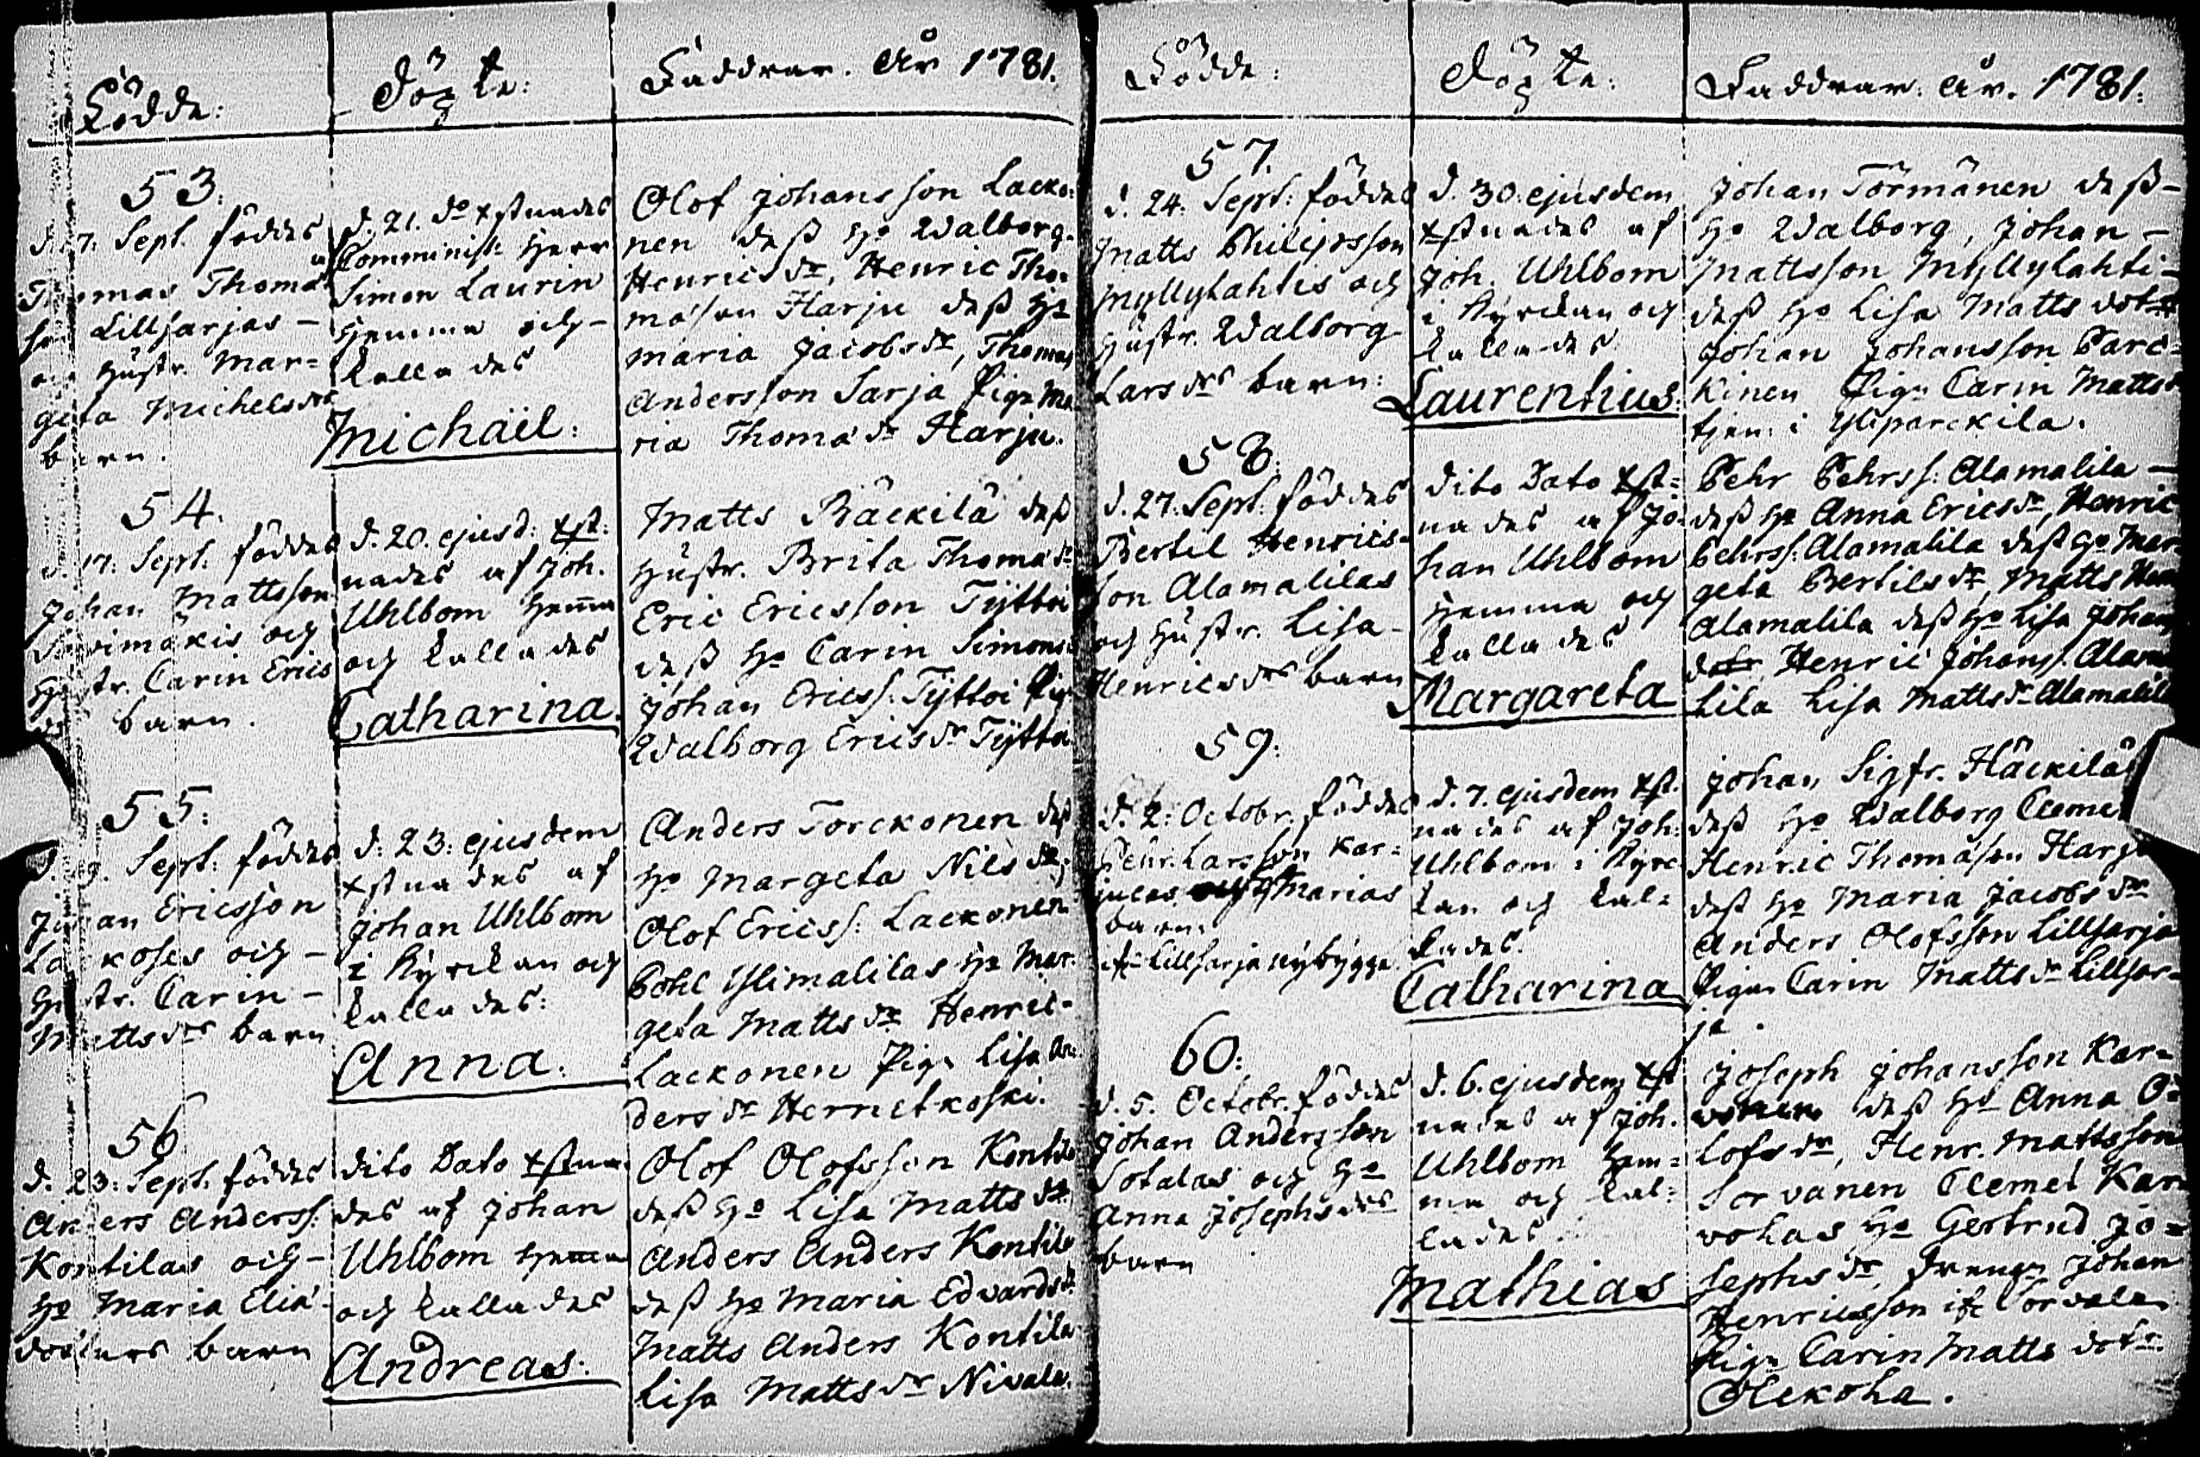 Födde:
Döpte:
Faddrar. År 1781.
53.
d. 17. Sept. föddes
Thomas Thomas
son Lillsarjas -
och Hustr. Mar=
geta Michelsdrs
barn.
d. 21. do Xstnades
a Comminist: Herr
Simon Laurin
Hemma och -
kallades
Michaël:
Olof Johansson Lacko=
nen dess Ho Walborg
Henricsdr, Henric Tho=
mason Harju dess Ho
Maria Jacobsdr, Thomas
Andersson Sarja Pign Ma
ria Thomadr Harju.
54.
d. 17. Sept. föddes
Johan Mattsson
och
Hustr. Carin Erics
drs barn.
d. 20. ejusd: Xst:
nades af Joh.
Uhlbom Hemma
och kallades
Catharina.
Matts Räckilä dess
Hustr. Brita Thomadr
Eric Ericsson Tÿttoi
dess Ho Carin Simonsdr
Johan Ericss. Tÿttoi Pign
Walborg Ericsdr Tÿtto
55.
Sept: föddes
Johan Ericsson
Lackoses och -
Hustr. Carin -
Mattsdrs barn
d. 23. ejusdem
Xstnades af
Johan Uhlbom
i Kyrckan och
kallades:
Anna.
Anders Torckonen dess
Ho Margeta Nilsdr,
Olof Ericss. Lackonen
Pohl Ylimalilas Ho Mar
geta Mattsdr Henric-
Lackonen Pign Lisa An=
dersdr Herrietkoski.
56
d. 23. Sept. föddes
Anders Anderss.
Kontilas och -
Ho Maria Elia-
dotters barn
dito Dato Xstna
des af Johan
Uhlbom Hemma
och kallades
Andreas:
Olof Olofsson Kontila
dess Ho Lisa Mattsdr
Anders Anders Kontila
dess Ho Maria Edvardsdr
Matts Anders Kontila
Lisa Mattsdr Nivala.
Födde:
Döpte:
Faddrar: År. 1781.
57.
d. 24. Sept: föddes
Matts Philipsson
Myllylahtis och
Hustr. Walborg
Larsdrs barn:
d. 30. ejusdem
Xstnades af
Joh. Uhlbom
i Kyrckan och
kallades
Laurentius.
Johan Törmänen dess -
Ho Walborg, Johan -
Mattsson Myllylahti -
dess Ho Lisa Matts dotr
Johan Johansson Parc=
kinen Pign Carin Mattsdr
tjen: i Yliparckila.
58.
d. 27. Sept. föddes
Bertil Henrics-
son Alamalilas
och Hustr. Lisa -
Henricsdrs barn
dito Dato Xst=
nades af Jo=
han Uhlbom
Hemma och
kallades
Margareta
Pehr Pehrss. Alamalila -
dess Ho Anna Ericsdr, Henric
Pehrss. Alamalila dess Ho Mar=
geta Bertilsdr, Matts Hen
Alamalila dess Ho Lisa Johans
dotr, Henric Johanss. Alama
lila Lisa Mattsdr Alamalila
59.
d. 2. Octobr. föddes
Pehr Larsson Kar=
julas Marias
barn.
ifr Lillsarja nÿbÿgge.
d. 7. ejusdem Xst.
nades af Joh:
Uhlbom i Kyrc
kan och kal=
lades.
Catharina
Johan Sigfr. Häckilä
dess Ho Walborg Clemet
Henric Thomason Harju
dess Ho Maria Jacobsdr
Anders Olofsson Lillsarja
Pign Carin Mattsdr Lillsar=
ja.
60.
d. 5. Octobr. föddes
Johan Andersson
Sotalas och Ho
Anna Josephsdrs
barn
d. 6. ejusdem Xst
nades af Joh.
Uhlbom Hem=
ma och kal=
lades.
Mathias
Joseph Johansson Kar=
vonen dess Ho Anna O=
lofsdr, Henr. Mattsson
Sorvanen Clemet Kar
vohas Ho Gertrud Jo=
sephsdr, Drengn Johan
Henricsson ifr Sorvala
Pign Carin Matts dotr.
Olckoha.